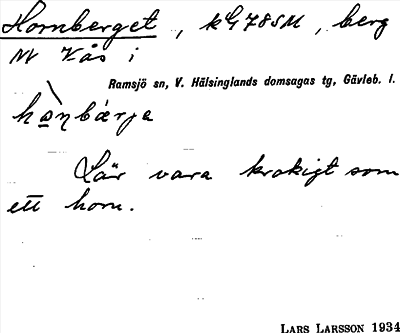 Hornberget, kG78SM, berg
NV Kås i
Ramsjö sn, V. Hälsinglands domsagas tg, Gävleb. l.
Lär vara krokigt som
ett horn.
LARS LARSSON 1934